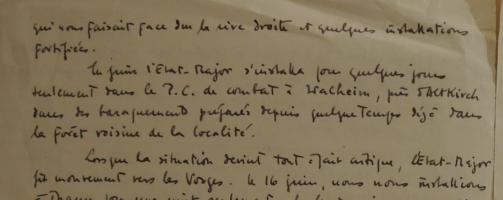 qui nous faisait face sur la rive droite et quelques installations
fortifiées.
En juin l'Etat-Major s'installa pour quelques jours
seulement dans le P.C. de combat à Walheim, près d'Altkirch
dans des baraquements préparés depuis quelque temps déjà dans
la forêt voisine de la localité.
Lorsque la situation devint tout à fait critique, l'Etat-Major
fit mouvement vers les Vosges. Le 16 juin, nous nous installions
à Thann pour une nuit seulement